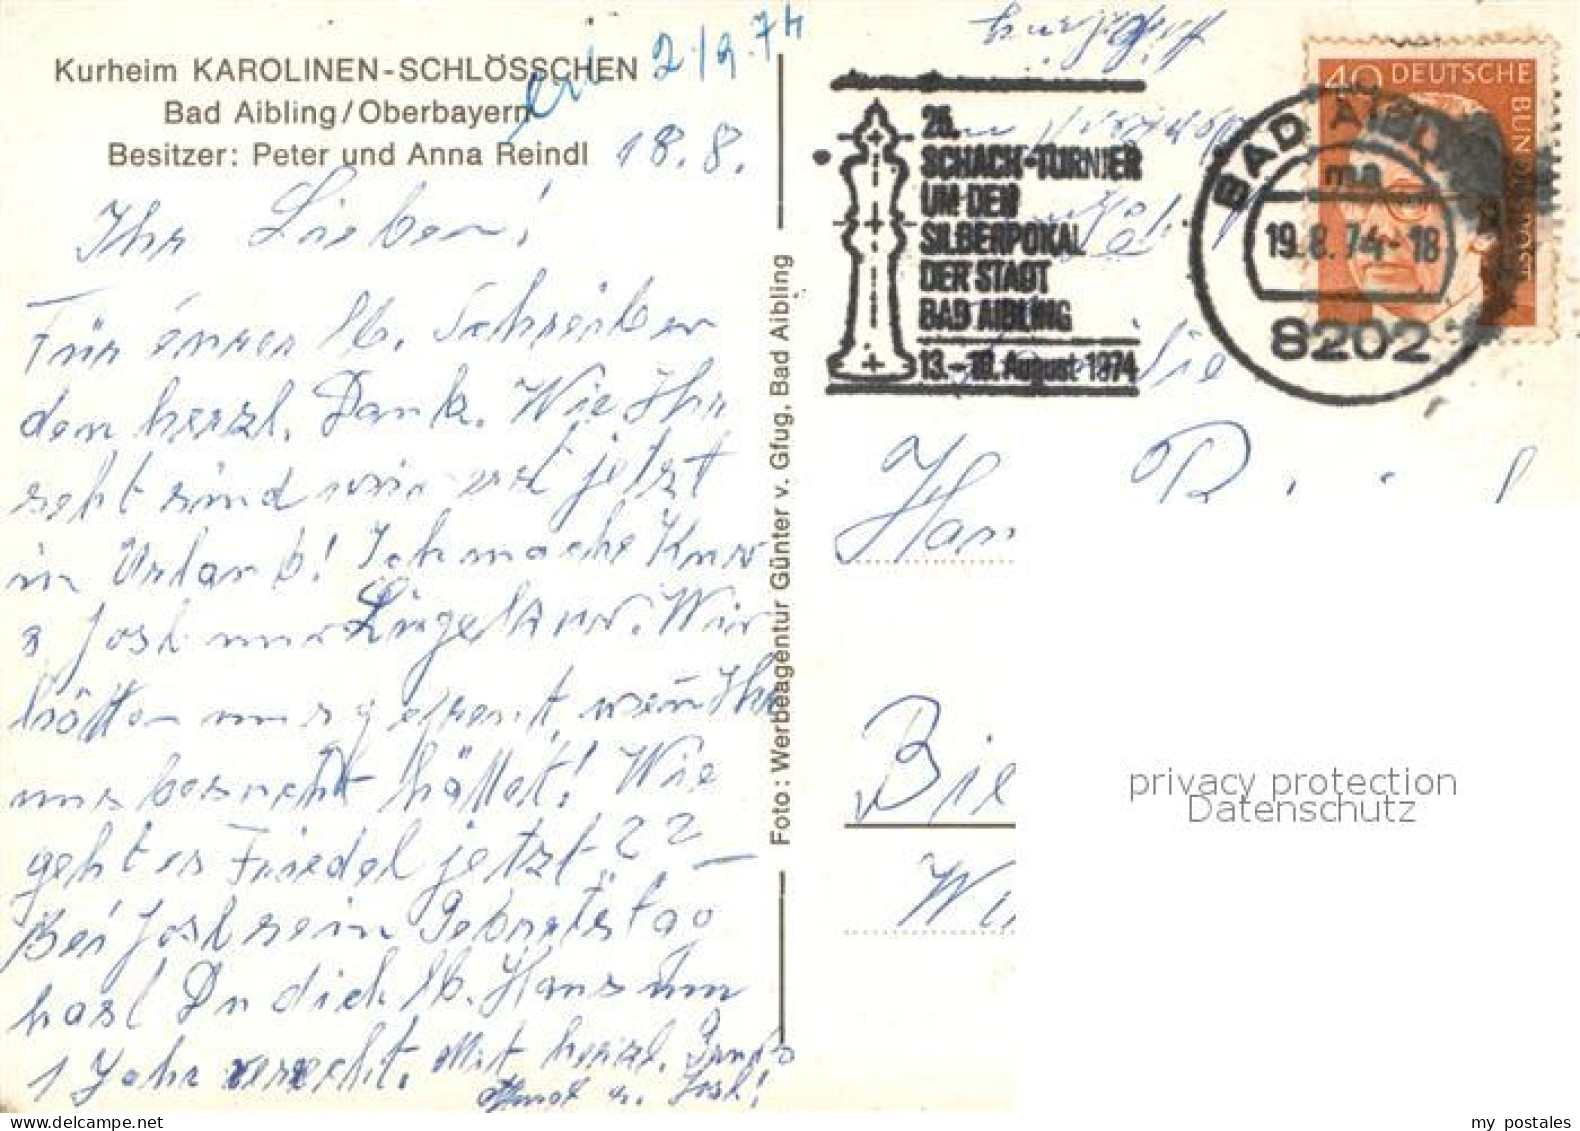 Kurheim KAROLINEN-SCHLÖSSCHEN
Bad Aibling/Oberbayern
Besitzer: Peter und Anna Reindl
2/9.74
18.8.
Ihr Lieben!
Für euren lb. Schreiben
den herzl. Dank. Wie Ihr
seht sind wir erst jetzt
in Urlaub! Ich mache Kur
Josl nur Liegekur. Wir
hätten uns gefreut, wenn Ihr
uns besucht hättet! Wie
geht es Friedel jetzt ??
Bei Josl sein Geburtstag
hast Du dich lb. Hans um
1 Jahr verrecht. Mit herzl. Gruß
u. Josl!
Foto: Werbeagentur Günter v. Gfug, Bad Aibling
25.
SCHACH-TURNIER
UM DEN
SILBERPOKAL
DER STADT
BAD AIBLING
13.-18. August 1974
BAD AIBLING
ma
19.8.74-18
8202
40 DEUTSCHE BUNDESPOST
Die
privacy protection
Datenschutz
my postales